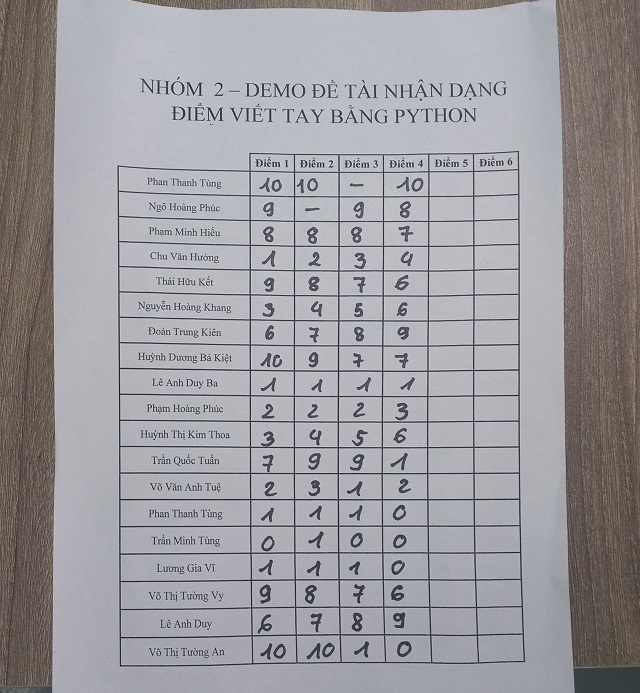 NHÓM 2 – DEMO ĐỀ TÀI NHẬN DẠNG
ĐIỂM VIẾT TAY BẰNG PYTHON
Điểm 1 Điểm 2 Điểm 3 Điểm 4 Điểm 5 Điểm 6
Phan Thanh Tùng 10 10 – 10
Ngô Hoàng Phúc 9 – 9 8
Phạm Minh Hiếu 8 8 8 7
Chu Văn Hưởng 1 2 3 4
Thái Hữu Kết 9 8 7 6
Nguyễn Hoàng Khang 3 4 5 6
Đoàn Trung Kiên 6 7 8 9
Huỳnh Dương Bá Kiệt 10 9 7 7
Lê Anh Duy Ba 1 1 1 1
Phạm Hoàng Phúc 2 2 2 3
Huỳnh Thị Kim Thoa 3 4 5 6
Trần Quốc Tuấn 7 9 9 1
Võ Văn Anh Tuệ 2 3 1 2
Phan Thanh Tùng 1 1 1 0
Trần Minh Tùng 0 1 0 0
Lương Gia Vĩ 1 1 1 0
Võ Thị Tường Vy 9 8 7 6
Lê Anh Duy 6 7 8 9
Võ Thị Tường An 10 10 1 0